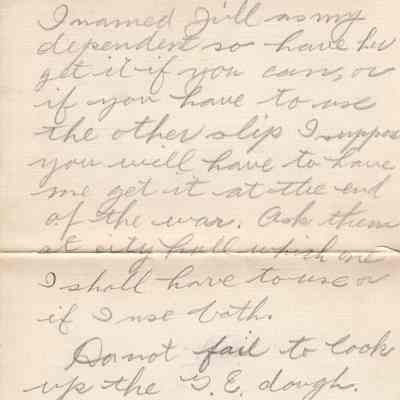 I named Jill as my
dependent so have her
get it if you can, or
if you have to use
the other slip I suppos
you will have to have
me get it at the end
of the war. Ask them
at city hall which one
I shall have to use or
if I use both.
Do not fail to look
up the G.E. dough.